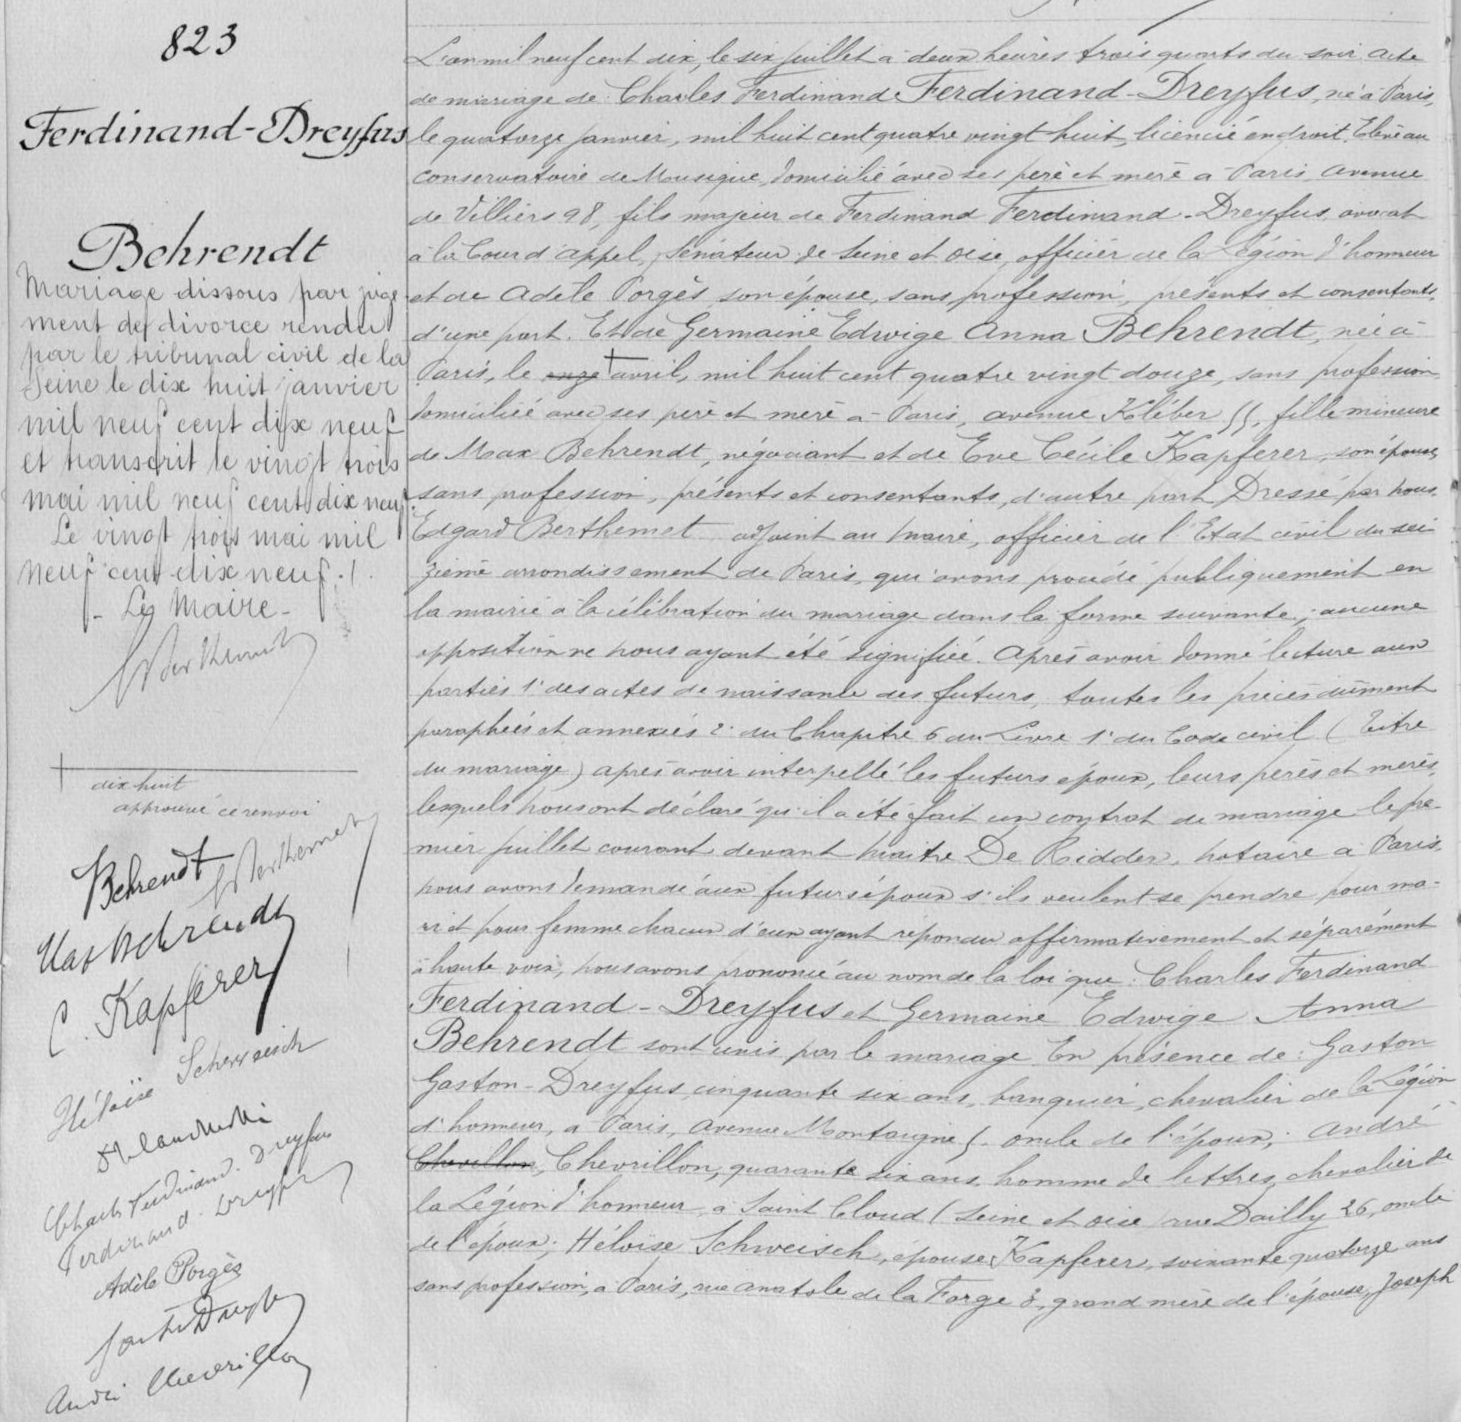 823
Ferdinand-Dreyfus
Behrendt
Mariage dissous par juge
ment de divorce rendu
par le tribunal civil de la
Seine le dix huit janvier
mil neuf cent dix neuf
et transcrit le vingt trois
mai mil neuf cent dix neuf
Le vingt trois mai mil
neuf cent dix neuf ./.
- Le Maire -
dix huit
approuvé ce renvoi
Behrendt
Berthemet
Max Behrendt
C. Kapferer
Héloïse Schweisch
Charles Ferdinand-Dreyfus
Ferdinand-Dreyfus
Adèle Porgès
Gaston Dreyfus
André Chevrillon
L'an mil neuf cent dix, le six juillet à deux heures trois quarts du soir. acte
de mariage de : Charles Ferdinand Ferdinand-Dreyfus, né à Paris,
le quatorze janvier, mil huit cent quatre vingt huit, licencié en droit, Elève au
conservatoire de Musique, domicilié avec ses père et mère à Paris, avenue
de Villiers 98, fils majeur de Ferdinand Ferdinand-Dreyfus, avocat
à la Cour d'appel, Sénateur de Seine et Oise, officier de la Légion d'honneur
et de Adèle Porgès son épouse, sans profession, présents et consentants,
d'une part. Et de Germaine Edwige Anna Behrendt, née à
Paris, le onze + avril, mil huit cent quatre vingt douze, sans profession,
domiciliée avec ses père et mère à Paris, avenue Kléber 55, fille mineure
de Max Behrendt, négociant et de Eve Cécile Kapferer, son épouse,
sans profession, présents et consentants, d'autre part, Dressé par nous,
Edgard Berthemet adjoint au maire, officier de l'Etat civil du sei
zième arrondissement de Paris, qui avons procédé publiquement en
la mairie à la célébration du mariage dans la forme suivante ; aucune
opposition ne nous ayant été signifiée. Après avoir donné lecture aux
parties 1° des actes de naissance des futurs, toutes les pièces dûment
paraphées et annexées 2° du Chapitre 6 du Livre 1er du Code civil (Titre
du mariage) après avoir interpellé les futurs époux, leurs pères et mères,
lesquels nous ont déclaré qu'il a été fait un contrat de mariage le pre-
mier juillet courant devant maître De Ridder, notaire à Paris,
nous avons demandé aux futurs époux s'ils veulent se prendre pour ma-
ri et pour femme chacun d'eux ayant répondu affirmativement et séparément
à haute voix, nous avons prononcé au nom de la loi que : Charles Ferdinand
Ferdinand-Dreyfus et Germaine Edwige Anna
Behrendt sont unis par le mariage En présence de : Gaston
Gaston-Dreyfus, cinquante six ans, banquier, chevalier de la Légion
d'honneur, à Paris, avenue Montaigne 5. oncle de l'époux ; André
Chevillon, Chevrillon, quarante six ans, homme de lettres, chevalier de
la Légion d'honneur, à Saint Cloud (Seine et Oise) rue Dailly 26, oncle
de l'époux ; Héloïse Schweisch, épouse Kapferer, soixante quatorze ans
sans profession, à Paris, rue Anatole de la Forge 8, grand mère de l'épouse, Joseph